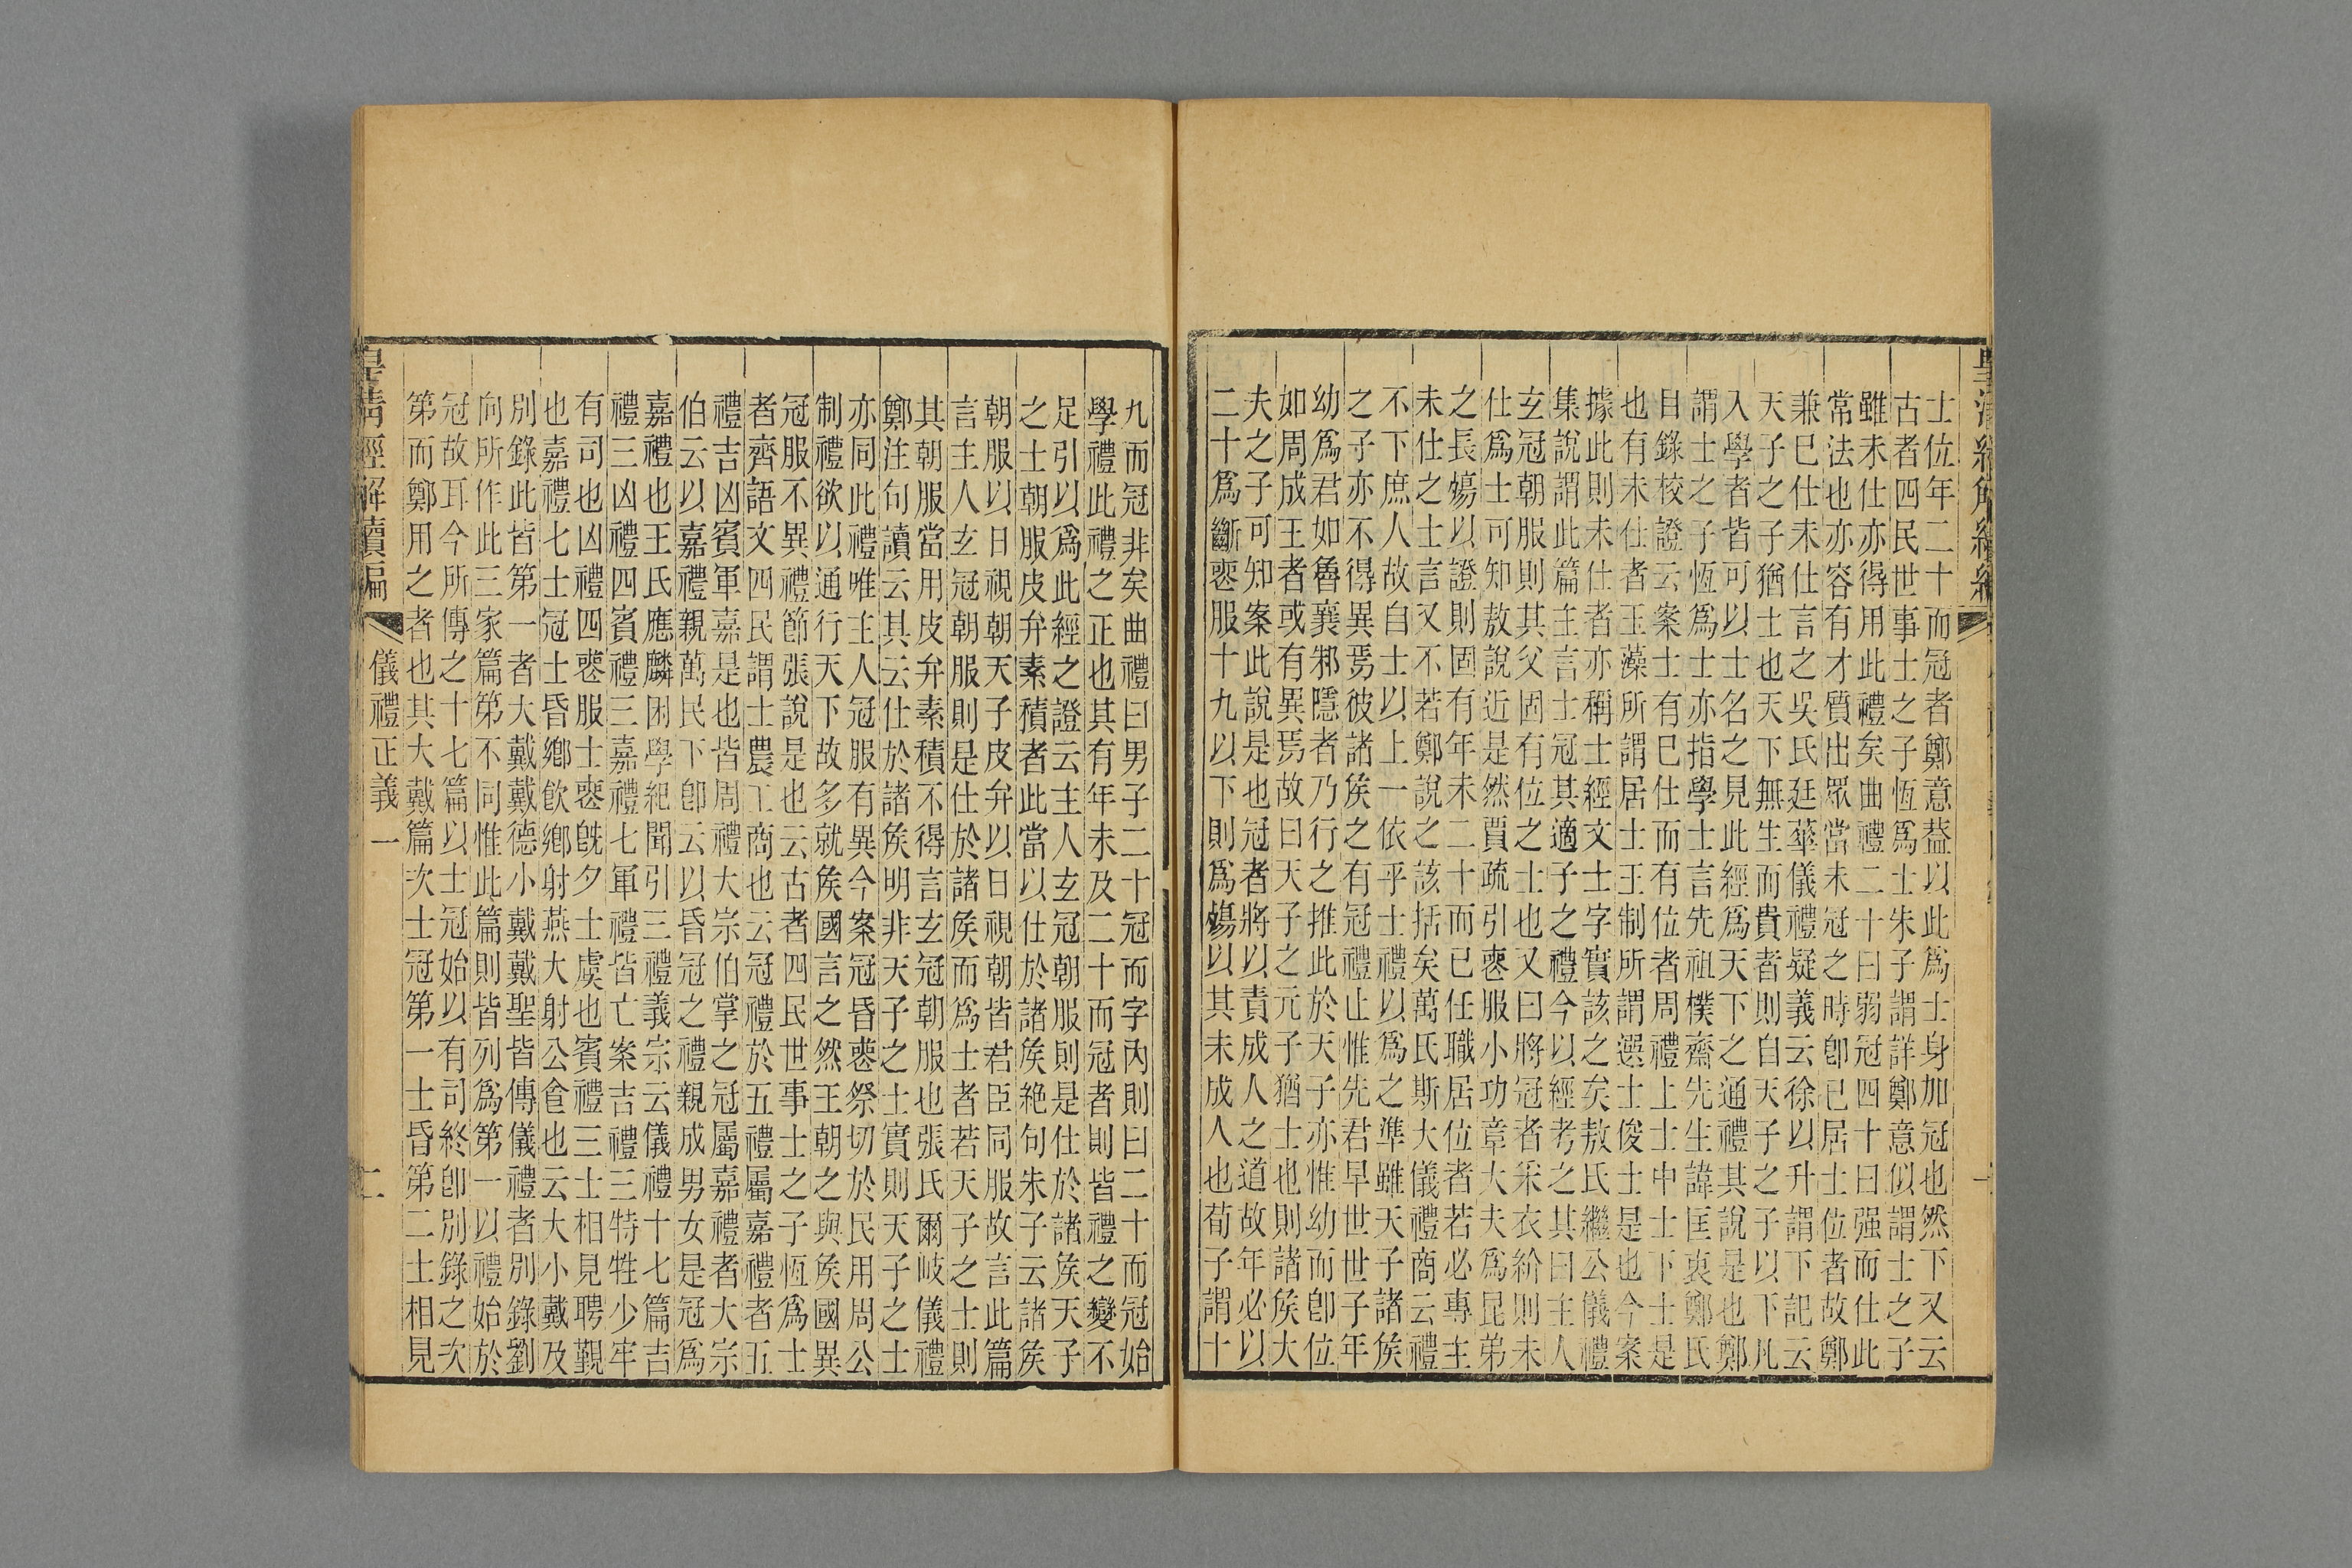 士位年二十而冠者鄭意葢以此爲士身加冠也然下又云
古者四民世事士之子恆爲士朱子謂詳鄭意似謂士之子
雖未仕亦得用此禮矣曲禮二十曰弱冠四十曰强而仕此
常法也亦容有才質出眾當未冠之時卽已居士位者故鄭
兼已仕未仕言之吳氏廷華儀禮疑義云徐以升謂下記云
天子之子猶士也天下無生而貴者則自天子之子以下凡
入學者皆可以士名之見此經爲天下之通禮其說是也鄭
謂士之子恆爲士亦指學士言先祖樸齋先生諱匡衷鄭氏
目錄校證云案士有已仕而有位者周禮上士中士下士是
也有未仕者玉藻所謂居士王制所謂選士俊士是也今案
據此則未仕者亦稱士經文士字實該之矣敖氏繼公儀禮
集說謂此篇主言士冠其適子之禮今以經考之其曰主人
玄冠朝服則其父固有位之士也又曰將冠者采衣紒則未
仕爲士可知敖說近是然賈疏引喪服小功章大夫爲昆弟
之長殤以證則固有年未二十而已任職居位者若必專主
未仕之士言又不若鄭說之該括矣萬氏斯大儀禮商云禮
不下庶人故自士以上一依乎士禮以爲之準雖天子諸矦
之子亦不得異焉彼諸矦之有冠禮止惟先君早世世子年
幼爲君如魯襄邾隱者乃行之推此於天子亦惟幼而卽位
如周成王者或有異焉故曰天子之元子猶士也則諸矦大
夫之子可知案此說是也冠者將以責成人之道故年必以
二十爲斷喪服十九以下則爲殤以其未成人也荀子謂十
九而冠非矣曲禮曰男子二十冠而字內則曰二十而冠始
學禮此禮之正也其有年未及二十而冠者則皆禮之變不
足引以爲此經之證云主人玄冠朝服則是仕於諸矦天子
之士朝服皮弁素積者此當以仕於諸矦絕句朱子云諸矦
朝服以日視朝天子皮弁以日視朝皆君臣同服故言此篇
言主人玄冠朝服則是仕於諸矦而爲士者若天子之士則
其朝服當用皮弁素積不得言玄冠朝服也張氏爾岐儀禮
鄭注句讀云其云仕於諸矦明非天子之士實則天子之士
亦同此禮唯主人冠服有異今案冠昏喪祭切於民用周公
制禮欲以通行天下故多就矦國言之然王朝之與矦國異
冠服不異禮節張說是也云古者四民世事士之子恆爲士
者齊語文四民謂士農工商也云冠禮於五禮屬嘉禮者五
禮吉凶賓軍嘉是也皆周禮大宗伯掌之冠屬嘉禮者大宗
伯云以嘉禮親萬民下卽云以昏冠之禮親成男女是冠爲
嘉禮也王氏應麟困學紀聞引三禮義宗云儀禮十七篇吉
禮三凶禮四賓禮三嘉禮七軍禮皆亡案吉禮三特牲少牢
有司也凶禮四喪服士喪旣夕士虞也賓禮三士相見聘覲
也嘉禮七士冠士昏鄉飮鄉射燕大射公食也云大小戴及
別錄此皆第一者大戴戴德小戴戴聖皆傳儀禮者別錄劉
向所作此三家篇第不同惟此篇則皆列爲第一以禮始於
冠故耳今所傳之十七篇以士冠始以有司終卽別錄之次
第而鄭用之者也其大戴篇次士冠第一士昏第二士相見
皇清經解續編 儀禮正義一 二